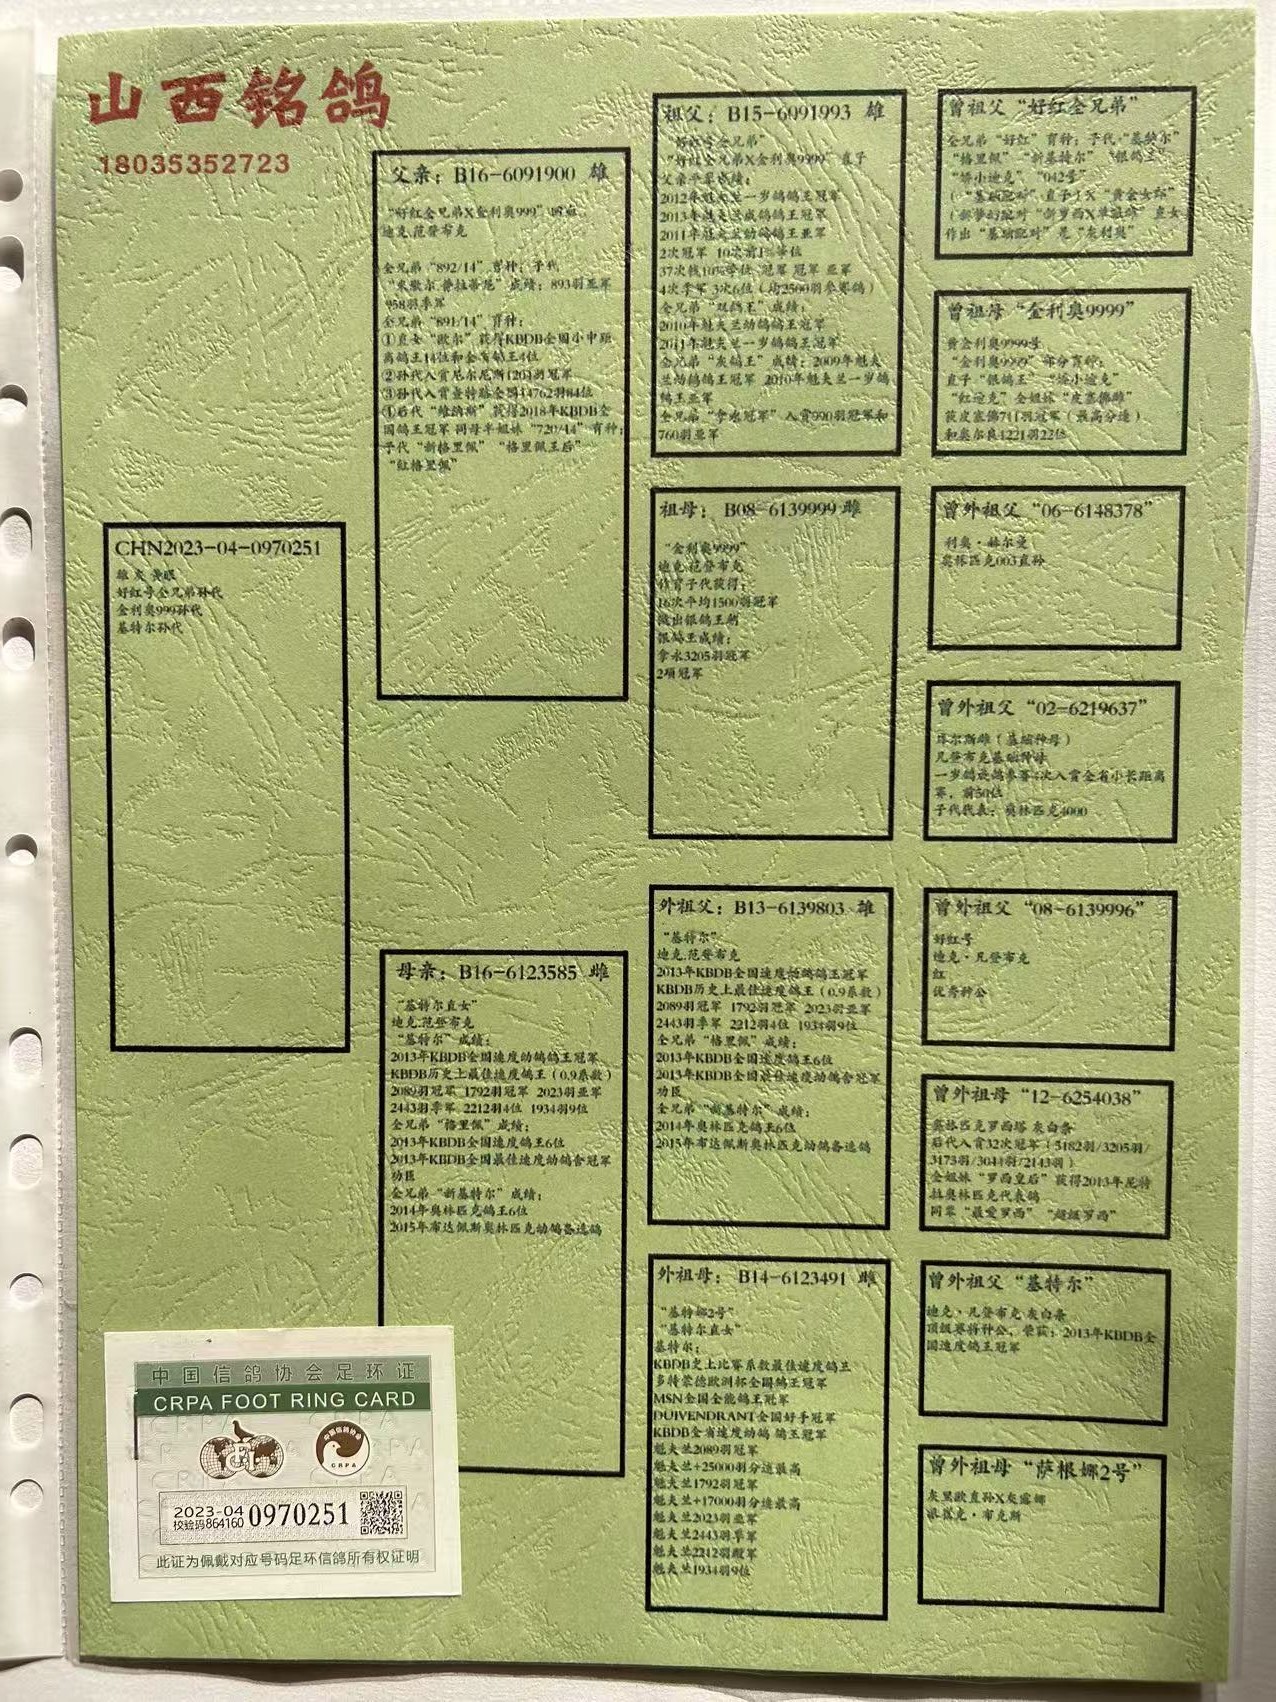 山西铭鸽
18035352723
CHN2023-04-0970251
雄 灰 黄眼
好红号全兄弟孙代
金利奥999孙代
基特尔孙代
父亲：B16-6091900 雄
"好红全兄弟X金利奥999"
迪克.范登布克
全兄弟"892/14"育种：子代
"米歇尔.普拉蒂尼"成绩：893羽亚军
958羽季军
全兄弟"891/14"育种：
①直女"欧尔"获得KBDB全国小中距
离鸽王14位和全省鸽王4位
②孙代入赏尼尔尼斯1201羽冠军
③孙代入赏查特路全国14762羽84位
④后代"维纳斯"获得2018年KBDB全
国鸽王冠军 同母半姐妹"720/14"育种：
子代"新格里佩" "格里佩王后"
"红格里佩"
母亲：B16-6123585 雌
"基特尔直女"
迪克.范登布克
"基特尔"成绩：
2013年KBDB全国速度幼鸽鸽王冠军
KBDB历史上最佳速度鸽王（0.9系数）
2089羽冠军 1792羽冠军 2023羽亚军
2443羽季军 2212羽4位 1934羽9位
全兄弟"格里佩"成绩：
2013年KBDB全国速度鸽王6位
2013年KBDB全国最佳速度幼鸽舍冠军
功臣
全兄弟"新基特尔"成绩：
2014年奥林匹克鸽王6位
2015年布达佩斯奥林匹克幼鸽备选鸽
祖父：B15-6091993 雄
"好红号全兄弟"
"好红全兄弟X金利奥9999"直子
父亲平辈成绩：
2012年魅夫兰一岁鸽鸽王冠军
2013年魅夫兰成鸽鸽王冠军
2011年魅夫兰幼鸽鸽王亚军
2次冠军 10次前1%等位
37次钱10%等位 冠军 冠军 亚军
4次季军 3次6位（均2500羽参赛鸽）
全兄弟"双鸽王"成绩：
2010年魅夫兰幼鸽鸽王冠军
2011年魅夫兰一岁鸽鸽王冠军
全兄弟"灰鸽王"成绩：2009年魅夫
兰幼鸽鸽王冠军 2010年魅夫兰一岁鸽
鸽王亚军
全兄弟"拿永冠军"入赏990羽冠军和
760羽亚军
祖母：B08-6139999 雌
"金利奥9999"
迪克.范登布克
作育子代获得：
16次平均1500羽冠军
做出银鸽王
银鸽王成绩：
拿永3205羽冠军
2项冠军
外祖父：B13-6139803 雄
"基特尔"
迪克.范登布克
2013年KBDB全国速度幼鸽鸽王冠军
KBDB历史上最佳速度鸽王（0.9系数）
2089羽冠军 1792羽冠军 2023羽亚军
2443羽季军 2212羽4位 1934羽9位
全兄弟"格里佩"成绩：
2013年KBDB全国速度鸽王6位
2013年KBDB全国最佳速度幼鸽舍冠军
功臣
全兄弟"新基特尔"成绩：
2014年奥林匹克鸽王6位
2015年布达佩斯奥林匹克幼鸽备选鸽
外祖母：B14-6123491 雌
"基特娜2号"
"基特尔直女"
基特尔：
KBDB史上比赛系数最佳速度鸽王
多特蒙德欧洲杯全国鸽王冠军
MSN全国全能鸽王冠军
DUIVENDRANT全国好手冠军
KBDB全省速度幼鸽 鸽王冠军
魁夫兰2089羽冠军
魁夫兰+25000羽分速最高
魁夫兰1792羽冠军
魁夫兰+17000羽分速最高
魁夫兰2023羽亚军
魁夫兰2443羽季军
魁夫兰2212羽殿军
魁夫兰1934羽9位
曾祖父"好红全兄弟"
全兄弟"好红"育种：子代"基特尔"
"格里佩" "新基特尔" "银鸽王"
"娇小迪克" "042号"
（"基础配对"直子）X"黄金女郎"
（超梦幻配对"新罗西X单根雄"直女
作出"基础配对"是"灰利奥"
曾祖母"金利奥9999"
黄金利奥9999号
"金利奥9999"部分育种：
直子"银鸽王" "娇小迪克"
"红迪克"全姐妹"皮塞佛雌"
获皮塞佛741羽冠军（最高分速）
和奥尔良1221羽22位
曾外祖父"06-6148378"
利奥·赫尔曼
奥林匹克003直孙
曾外祖父"02-6219637"
拜尔斯雌（基础种母）
凡登布克基础种雌
一岁鸽放鸽参赛4次入赏全省小长距离
赛，前50位
子代代表：奥林匹克4000
曾外祖父"08-6139996"
好红号
迪克·凡登布克
红
优秀种公
曾外祖母"12-6254038"
奥林匹克罗西塔 灰白条
后代入赏32次冠军（5182羽/3205羽/
3173羽/3044羽/2143羽）
全姐妹"罗西皇后"获得2013年尼特
拉奥林匹克代表鸽
同辈"最爱罗西" "超级罗西"
曾外祖父"基特尔"
迪克·凡登布克 灰白条
顶级赛将种公，荣获：2013年KBDB全
国速度鸽王冠军
曾外祖母"萨根娜2号"
灰里欧直孙X灰露娜
布克斯
中国信鸽协会足环证
CRPA FOOT RING CARD
中国信鸽协会
CRPA
2023-04
校验码864160
0970251
此证为佩戴对应号码足环信鸽所有权证明